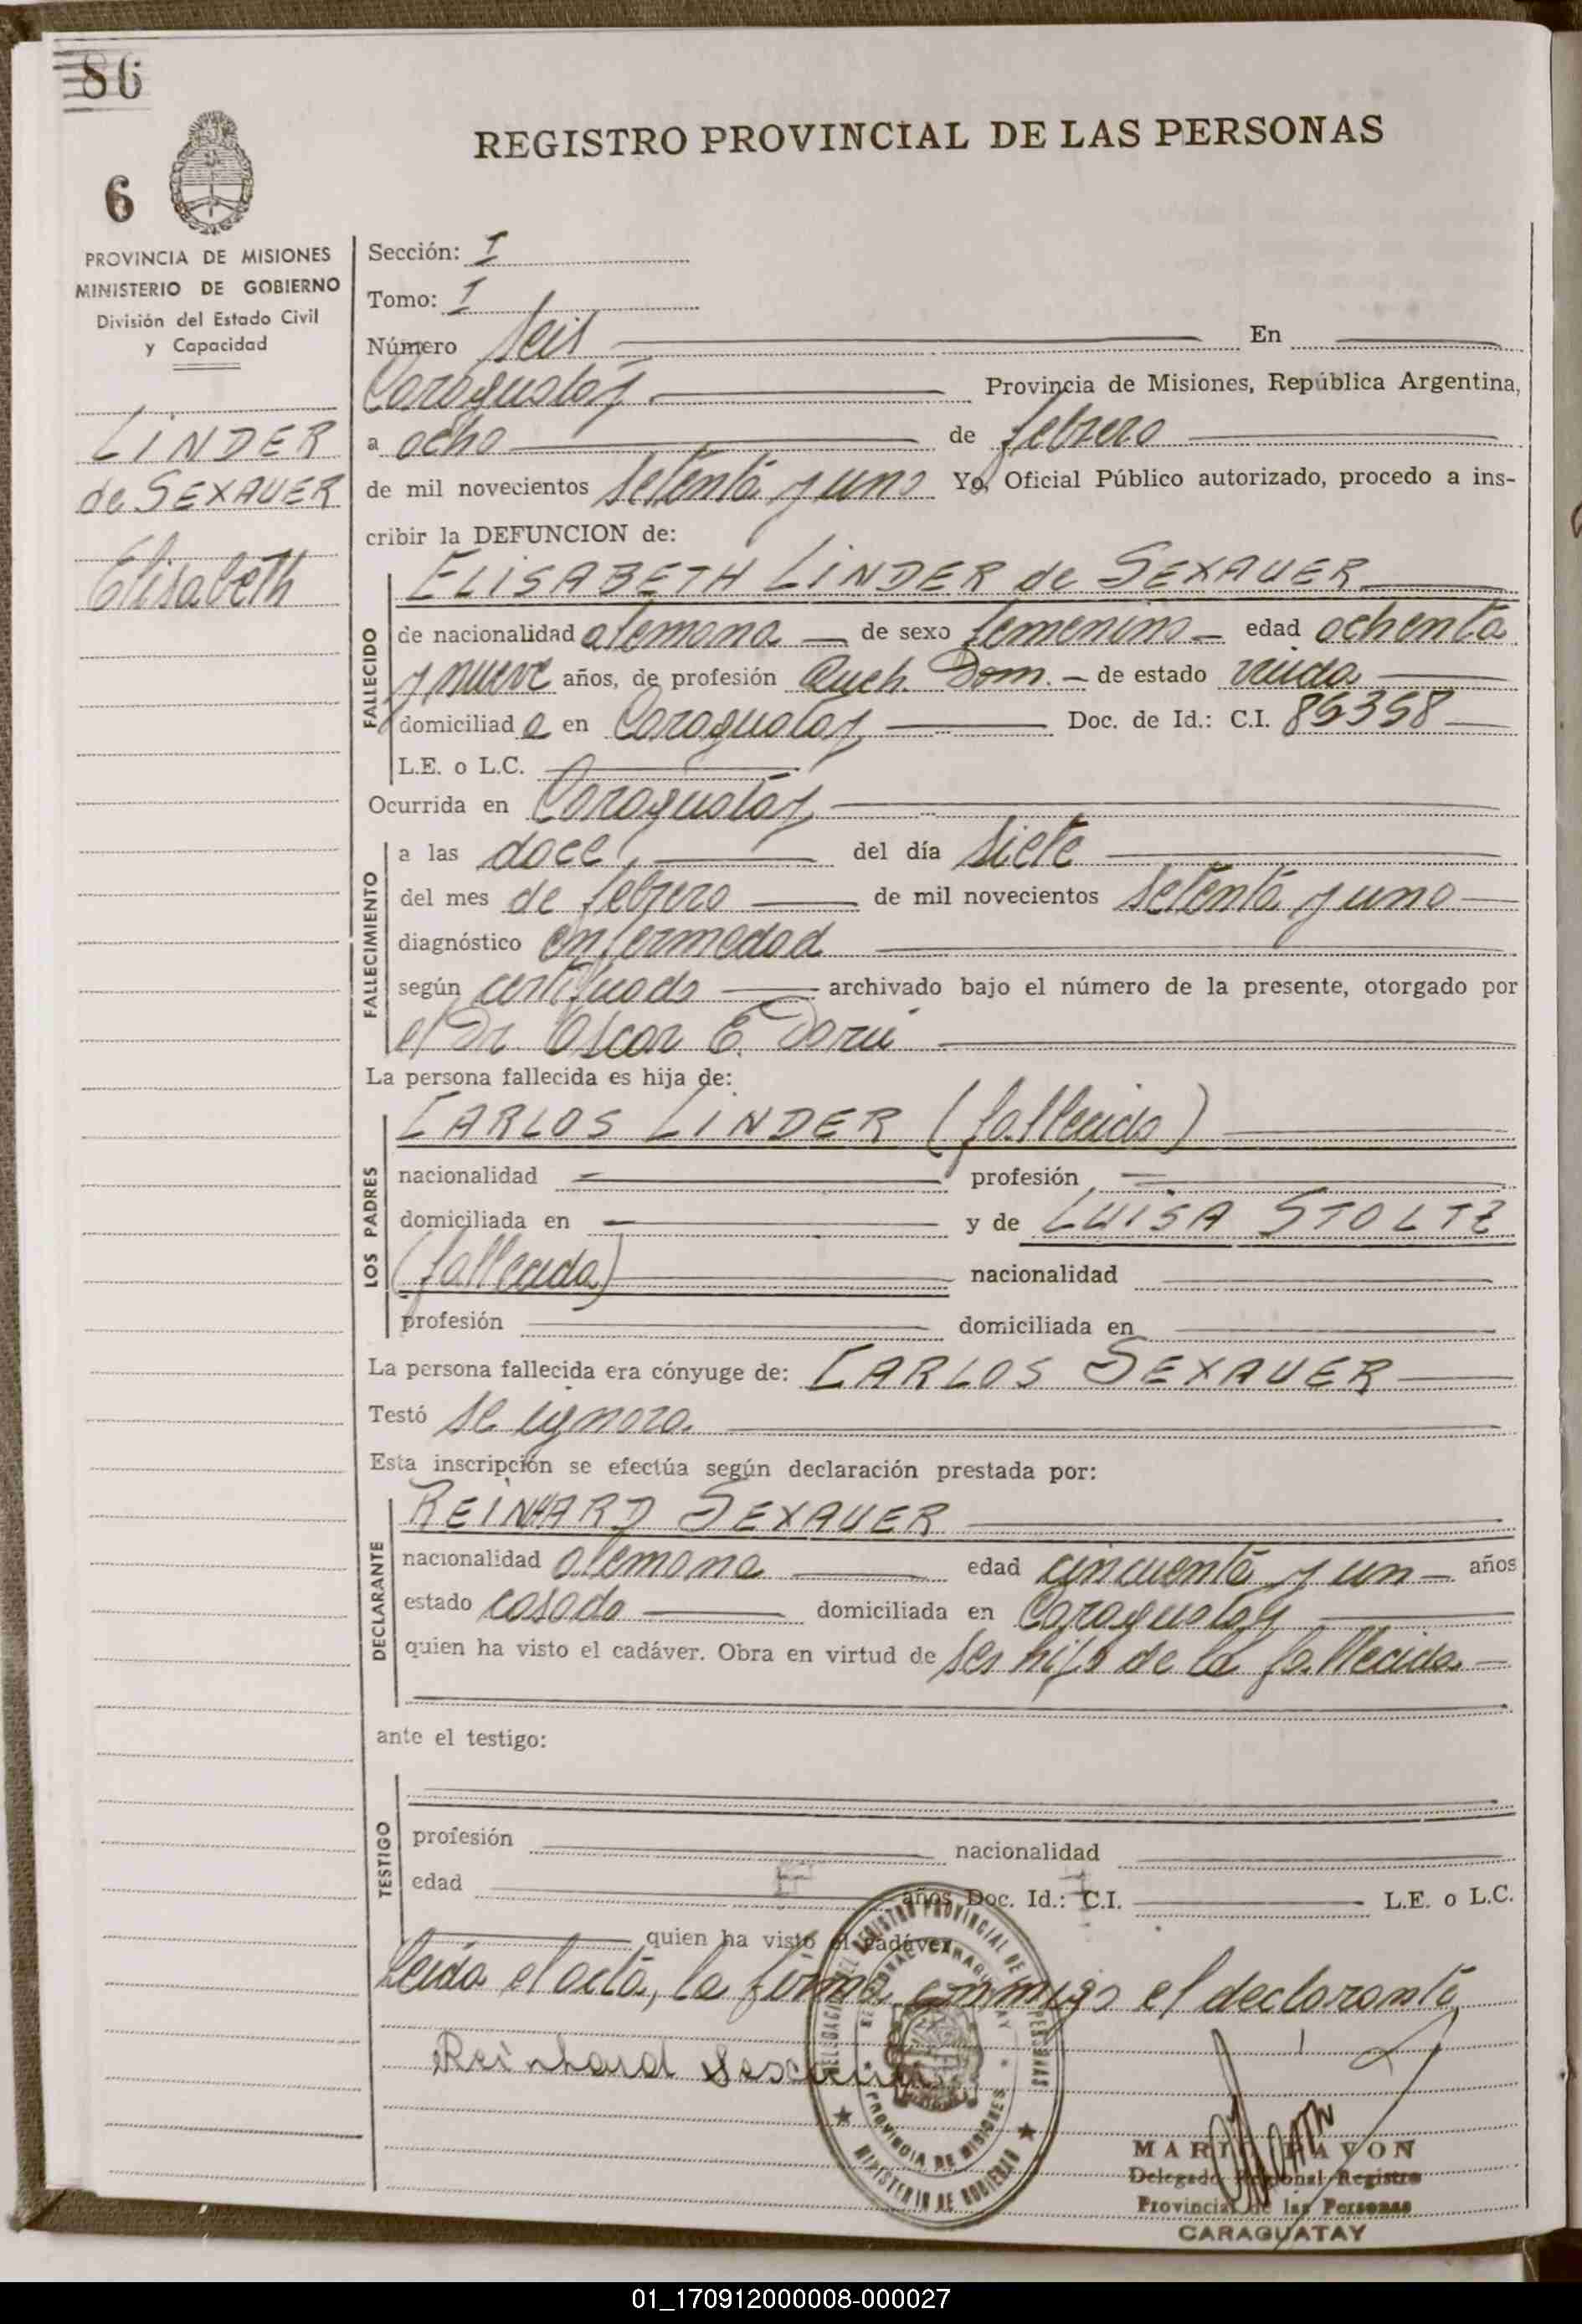 86
6
REGISTRO PROVINCIAL DE LAS PERSONAS
PROVINCIA DE MISIONES
MINISTERIO DE GOBIERNO
División del Estado Civil
y Capacidad
LINDER
de SEXAUER
Elisabeth
Sección: I
Tomo: I
Número seis En
Caraguatáy Provincia de Misiones, República Argentina,
a ocho de febrero
de mil novecientos setenta y uno Yo, Oficial Público autorizado, procedo a ins-
cribir la DEFUNCION de:
FALLECIDO
ELISABETH LINDER de SEXAUER
de nacionalidad alemana de sexo femenino edad ochenta
y nueve años, de profesión Queh. Dom. de estado viuda
domiciliad a en Caraguatay Doc. de Id.: C.I.
L.E. o L.C.
Ocurrida en Caraguatáy
FALLECIMIENTO
a las doce, del día siete
del mes de febrero de mil novecientos setenta y uno
diagnóstico enfermedad
según certificado archivado bajo el número de la presente, otorgado por
el Dr. Oscar E.
La persona fallecida es hija de:
LOS PADRES
CARLOS LINDER (fallecido)
nacionalidad profesión
domiciliada en y de LUISA STOLTZ
(fallecida) nacionalidad
profesión domiciliada en
La persona fallecida era cónyuge de: CARLOS SEXAUER
Testó se ignora
Esta inscripción se efectúa según declaración prestada por:
DECLARANTE
REINHARD SEXAUER
nacionalidad alemana edad cincuenta y un años
estado casado domiciliada en Caraguatay
quien ha visto el cadáver. Obra en virtud de ser hijo de la fallecida
ante el testigo:
TESTIGO
profesión nacionalidad
edad años Doc. Id.: C.I. L.E. o L.C.
quien ha visto el cadáver
Leída el acta, la firma conmigo el declarante
Reinhard Sexauer
DELEGACION DEL REGISTRO PROVINCIAL DE LAS PERSONAS
MINISTERIO DE GOBIERNO
PROVINCIA DE MISIONES
MARIO PAVON
Delegado Regional Registro
Provincial de las Personas
CARAGUATAY
01_170912000008-000027